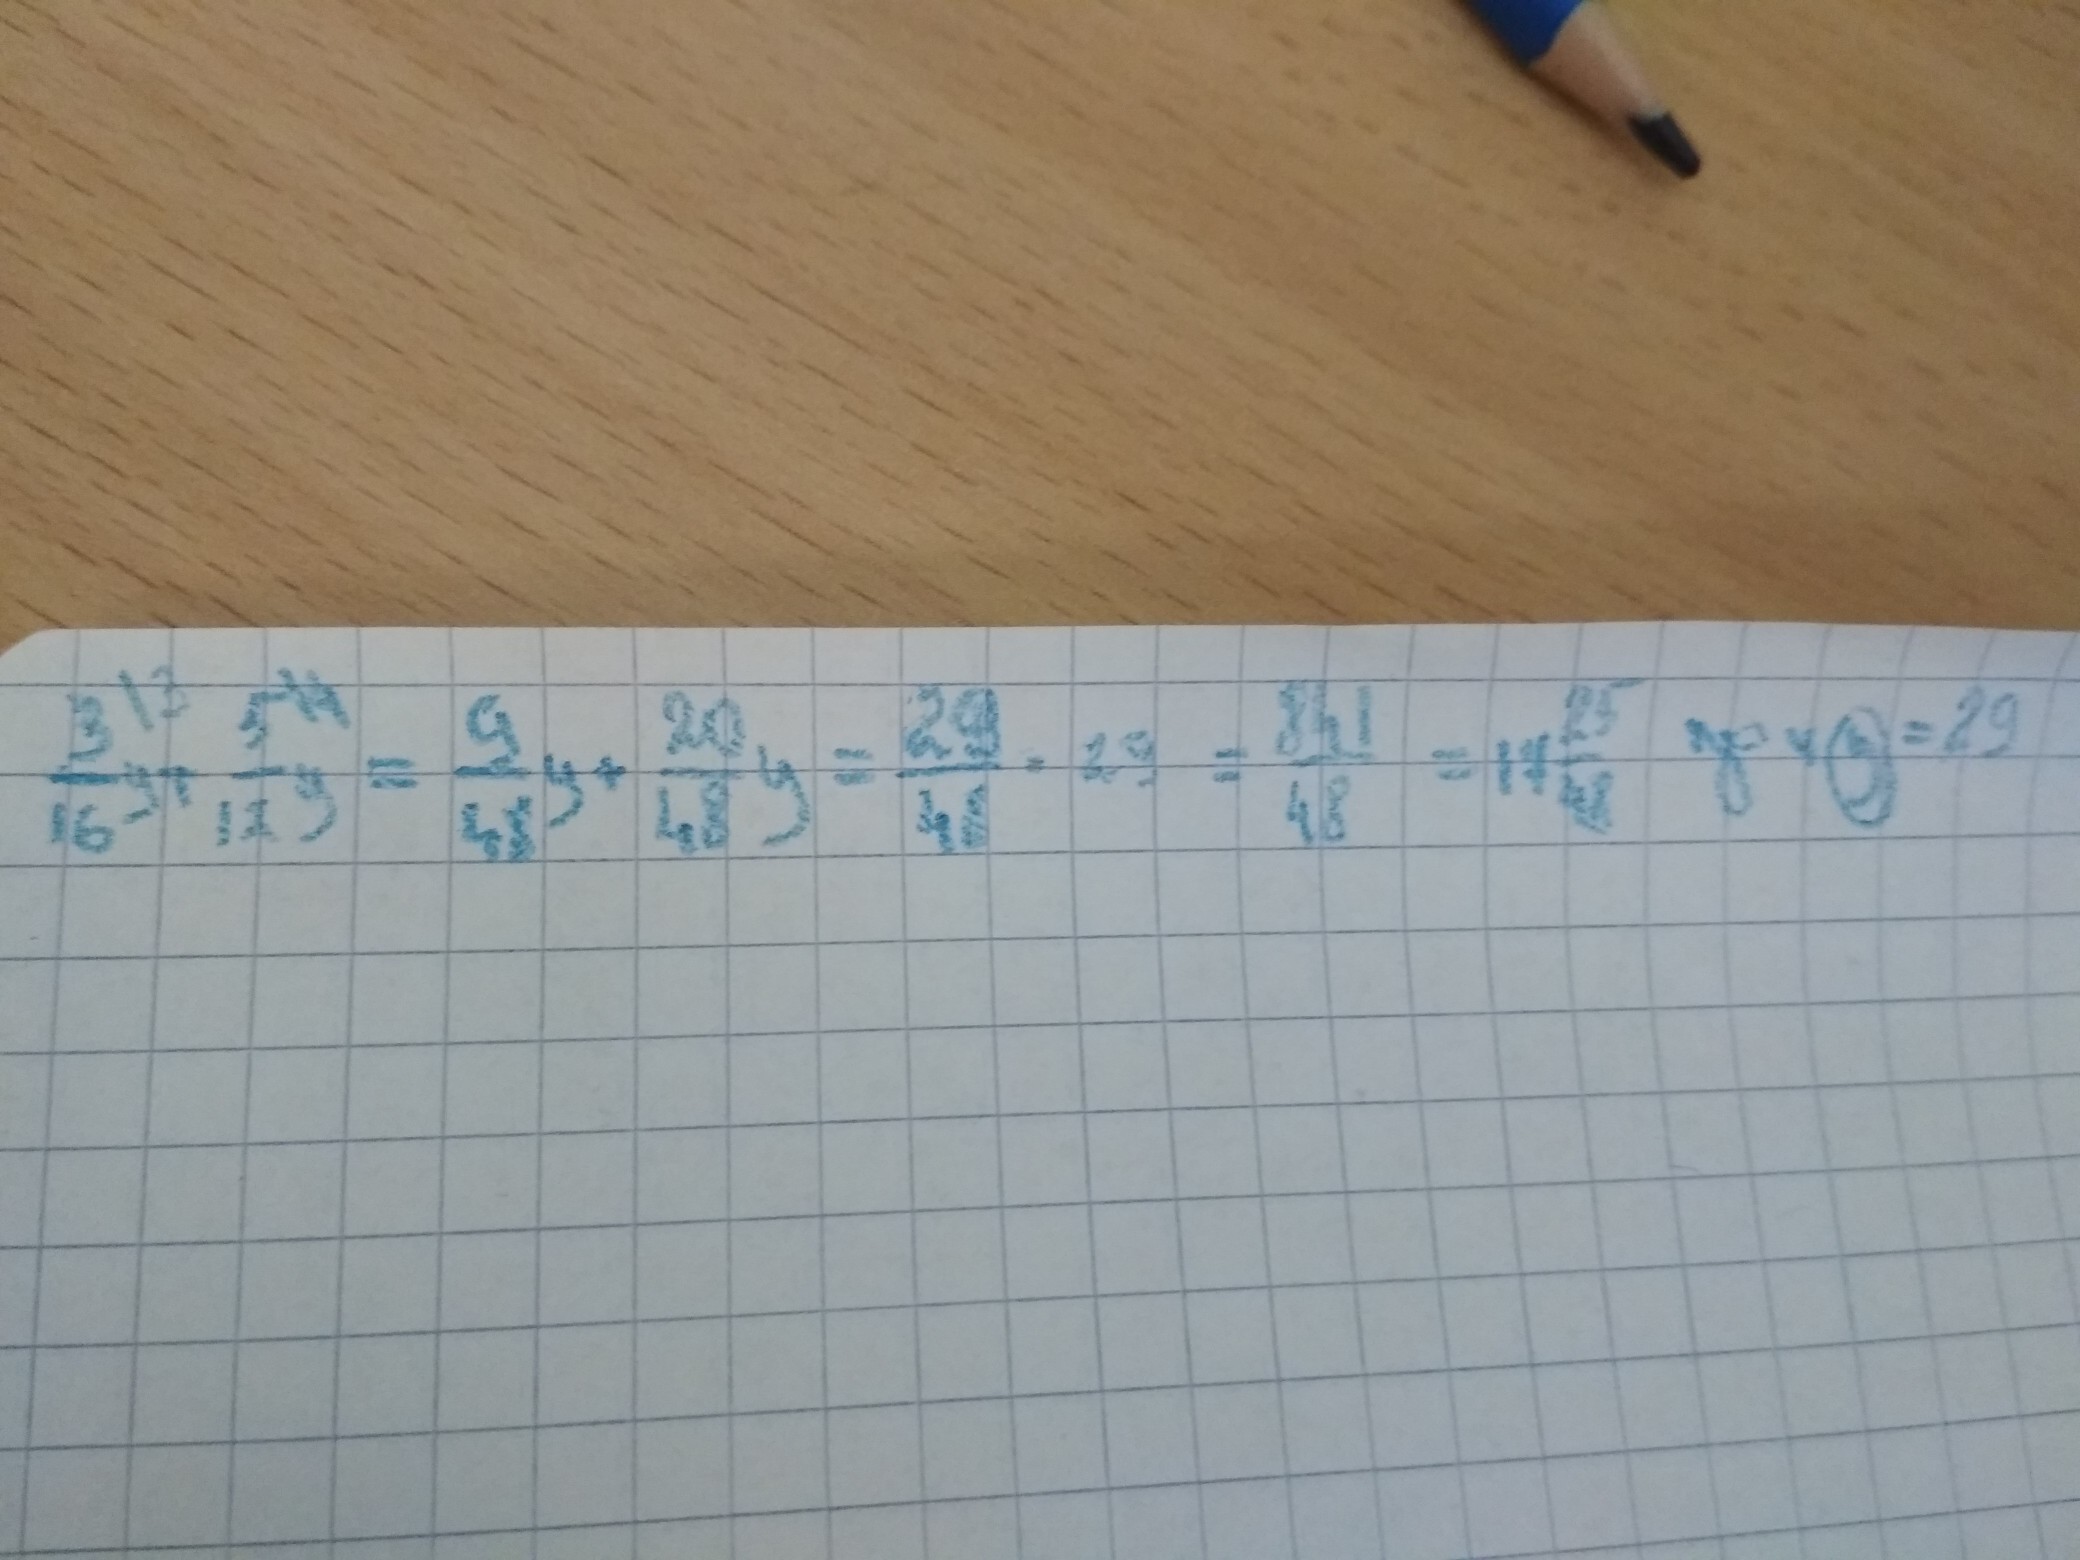 3\3/16 y + 5\4/12 y = 9/48 y + 20/48 y = 29/48 · 29 = 841/48 = 17 25/48 = 29